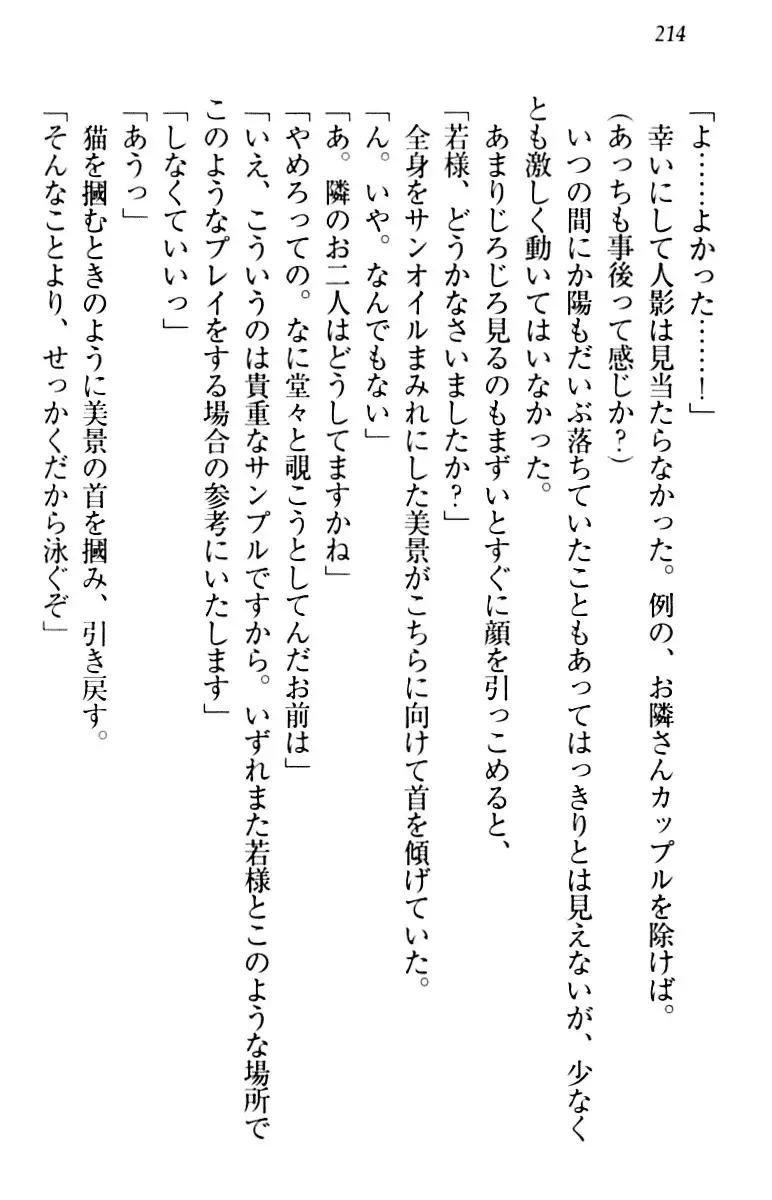 214
「よ……よかった……！」
幸いにして人影は見当たらなかった。例の、お隣さんカップルを除けば。
（あっちも事後って感じか？）
いつの間にか陽もだいぶ落ちていたこともあってはっきりとは見えないが、少なく
とも激しく動いてはいなかった。
あまりじろじろ見るのもまずいとすぐに顔を引っこめると、
「若様、どうかなさいましたか？」
全身をサンオイルまみれにした美景がこちらに向けて首を傾げていた。
「ん。いや。なんでもない」
「あ。隣のお二人はどうしてますかね」
「やめろっての。なに堂々と覗こうとしてんだお前は」
「いえ、こういうのは貴重なサンプルですから。いずれまた若様とこのような場所で
このようなプレイをする場合の参考にいたします」
「しなくていいっ」
「あうっ」
猫を摑むときのように美景の首を摑み、引き戻す。
「そんなことより、せっかくだから泳ぐぞ」